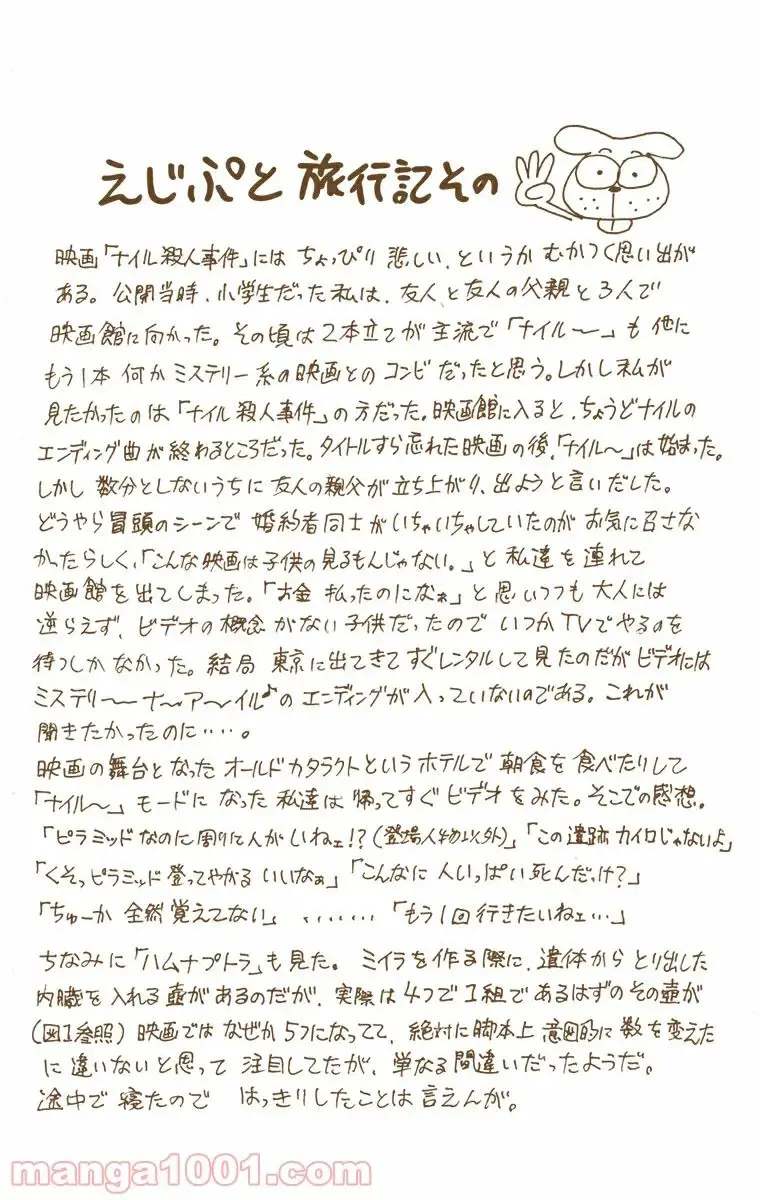 えじぷと旅行記その
映画「ナイル殺人事件」にはちょっぴり悲しい、というかむかつく思い出が
ある。公開当時、小学生だった私は、友人と友人の父親と3人で
映画館に向かった。その頃は2本立てが主流で「ナイル〜」も他に
もう1本何かミステリー系の映画とのコンビだったと思う。しかし私が
見たかったのは「ナイル殺人事件」の方だった。映画館に入ると、ちょうどナイルの
エンディング曲が終わるところだった。タイトルすら忘れた映画の後、「ナイル〜」は始まった。
しかし数分としないうちに友人の親父が立ち上がり、出ようと言いだした。
どうやら冒頭のシーンで婚約者同士がいちゃいちゃしていたのがお気に召さな
かったらしく、「こんな映画は子供の見るもんじゃない。」と私達を連れて
映画館を出てしまった。「お金払ったのになぁ」と思いつつも大人には
逆らえず、ビデオの概念がない子供だったのでいつかTVでやるのを
待つしかなかった。結局東京に出てきてすぐレンタルして見たのだがビデオには
ミステリ〜〜ナ〜ア〜イル♪のエンディングが入っていないのである。これが
聞きたかったのに・・・・。
映画の舞台となったオールドカタラクトというホテルで朝食を食べたりして
「ナイル〜」モードになった私達は帰ってすぐビデオをみた。そこでの感想。
「ピラミッドなのに周りに人がいねェ!?(登場人物以外)」「この遺跡カイロじゃないよ」
「くそっピラミッド登ってやがるいいなぁ」「こんなに人いっぱい死んだっけ?」
「ちゅーか全然覚えてない」・・・・・・・「もう1回行きたいねェ・・・」
ちなみに「ハムナプトラ」も見た。ミイラを作る際に、遺体からとり出した
内臓を入れる壺があるのだが、実際は4つで1組であるはずのその壺が
(図1参照)映画ではなぜか5つになってて、絶対に脚本上意図的に数を変えた
に違いないと思って注目してたが、単なる間違いだったようだ。
途中で寝たのではっきりしたことは言えんが。
manga1001.com